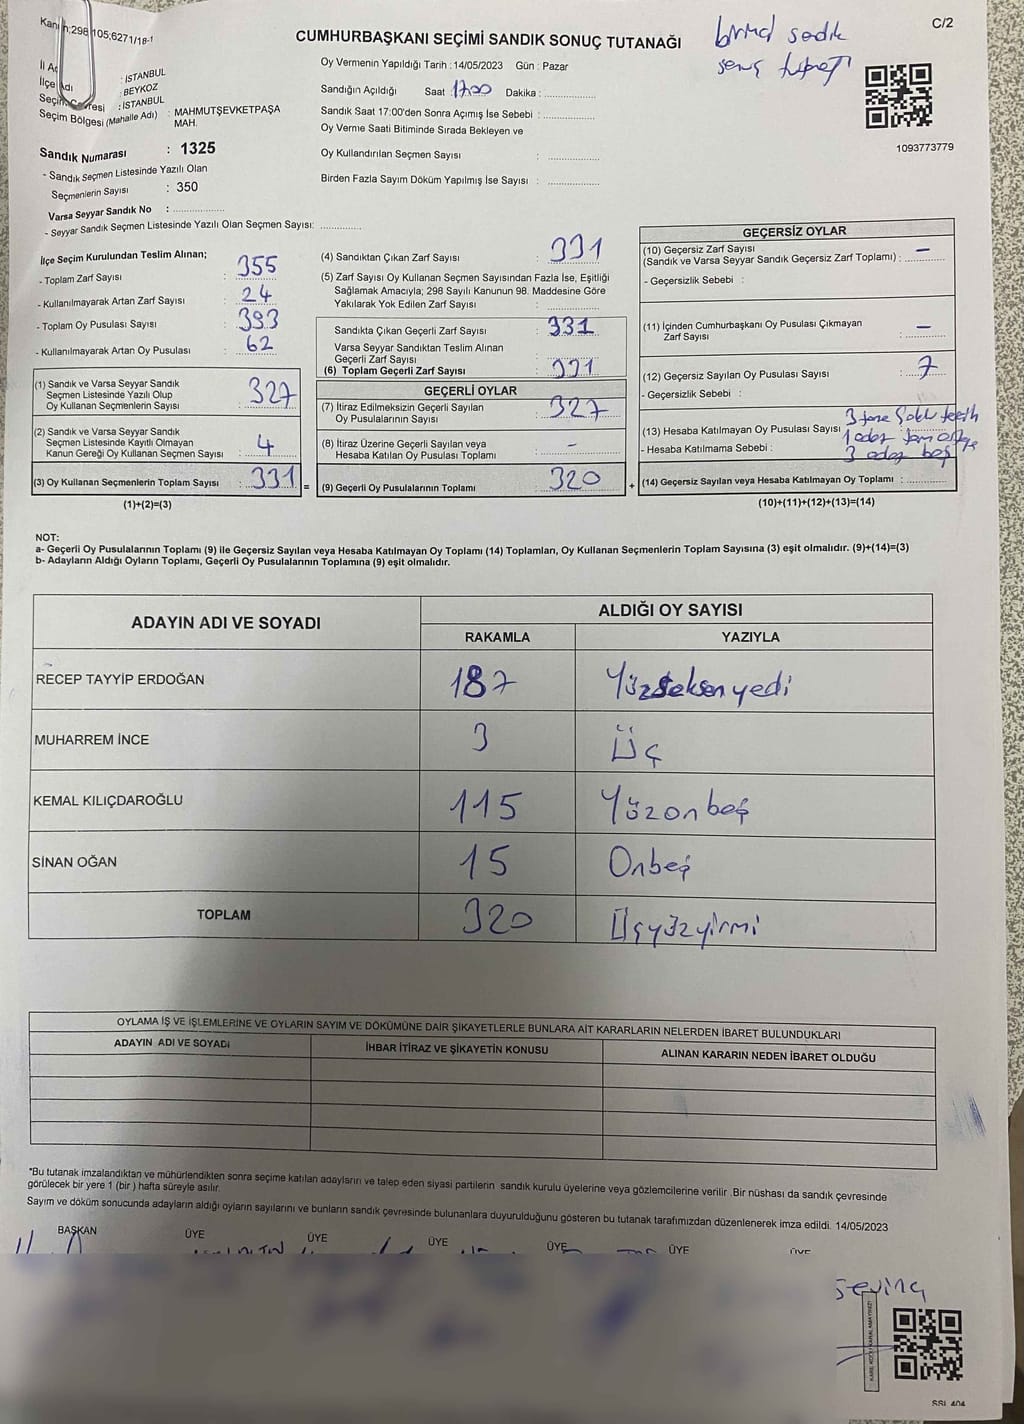 Kanun;298 105;6271/18-1
CUMHURBAŞKANI SEÇİMİ SANDIK SONUÇ TUTANAĞI
birinci sandık
C/2
Oy Vermenin Yapıldığı Tarih : 14/05/2023 Gün : Pazar
İl Adı : İSTANBUL
İlçe Adı : BEYKOZ
Seçim Çevresi : İSTANBUL
Seçim Bölgesi (Mahalle Adı) : MAHMUTŞEVKETPAŞA MAH.
Sandık Numarası : 1325
- Sandık Seçmen Listesinde Yazılı Olan
Seçmenlerin Sayısı : 350
Varsa Seyyar Sandık No : ....................
- Seyyar Sandık Seçmen Listesinde Yazılı Olan Seçmen Sayısı: ..............
Sandığın Açıldığı Saat : 17:00 Dakika : ................
Sandık Saat 17:00'den Sonra Açımış İse Sebebi : ................
Oy Verme Saati Bitiminde Sırada Bekleyen ve
Oy Kullandırılan Seçmen Sayısı : ................
Birden Fazla Sayım Döküm Yapılmış İse Sayısı : ................
1093773779
İlçe Seçim Kurulundan Teslim Alınan;
- Toplam Zarf Sayısı : 355
- Kullanılmayarak Artan Zarf Sayısı : 24
- Toplam Oy Pusulası Sayısı : 393
- Kullanılmayarak Artan Oy Pusulası : 62
(1) Sandık ve Varsa Seyyar Sandık
Seçmen Listesinde Yazılı Olup
Oy Kullanan Seçmenlerin Sayısı : 327
(2) Sandık ve Varsa Seyyar Sandık
Seçmen Listesinde Kayıtlı Olmayan
Kanun Gereği Oy Kullanan Seçmen Sayısı : 4
(3) Oy Kullanan Seçmenlerin Toplam Sayısı : 331
(1)+(2)=(3)
(4) Sandıktan Çıkan Zarf Sayısı : 331
(5) Zarf Sayısı Oy Kullanan Seçmen Sayısından Fazla İse, Eşitliği
Sağlamak Amacıyla; 298 Sayılı Kanunun 98. Maddesine Göre
Yakılarak Yok Edilen Zarf Sayısı : ................
Sandıkta Çıkan Geçerli Zarf Sayısı : 331
Varsa Seyyar Sandıktan Teslim Alınan
Geçerli Zarf Sayısı : ................
(6) Toplam Geçerli Zarf Sayısı : 331
GEÇERLİ OYLAR
(7) İtiraz Edilmeksizin Geçerli Sayılan
Oy Pusulalarının Sayısı : 327
(8) İtiraz Üzerine Geçerli Sayılan veya
Hesaba Katılan Oy Pusulası Toplamı : -
= (9) Geçerli Oy Pusulalarının Toplamı : 320 +
GEÇERSİZ OYLAR
(10) Geçersiz Zarf Sayısı
(Sandık ve Varsa Seyyar Sandık Geçersiz Zarf Toplamı) : -
- Geçersizlik Sebebi :
(11) İçinden Cumhurbaşkanı Oy Pusulası Çıkmayan
Zarf Sayısı : -
(12) Geçersiz Sayılan Oy Pusulası Sayısı : 7
- Geçersizlik Sebebi :
(13) Hesaba Katılmayan Oy Pusulası Sayısı
3 tane
- Hesaba Katılmama Sebebi :
1 adet
3 adet boş
(14) Geçersiz Sayılan veya Hesaba Katılmayan Oy Toplamı : ............
(10)+(11)+(12)+(13)=(14)
NOT:
a- Geçerli Oy Pusulalarının Toplamı (9) ile Geçersiz Sayılan veya Hesaba Katılmayan Oy Toplamı (14) Toplamları, Oy Kullanan Seçmenlerin Toplam Sayısına (3) eşit olmalıdır. (9)+(14)=(3)
b- Adayların Aldığı Oyların Toplamı, Geçerli Oy Pusulalarının Toplamına (9) eşit olmalıdır.
ADAYIN ADI VE SOYADI
ALDIĞI OY SAYISI
RAKAMLA YAZIYLA
RECEP TAYYİP ERDOĞAN 187 Yüzseksenyedi
MUHARREM İNCE 3 Üç
KEMAL KILIÇDAROĞLU 115 Yüzonbeş
SİNAN OĞAN 15 Onbeş
TOPLAM 320 Üçyüzyirmi
OYLAMA İŞ VE İŞLEMLERİNE VE OYLARIN SAYIM VE DÖKÜMÜNE DAİR ŞİKAYETLERLE BUNLARA AİT KARARLARIN NELERDEN İBARET BULUNDUKLARI
ADAYIN ADI VE SOYADI İHBAR İTİRAZ VE ŞİKAYETİN KONUSU ALINAN KARARIN NEDEN İBARET OLDUĞU
"Bu tutanak imzalandıktan ve mühürlendikten sonra seçime katılan adayların ve talep eden siyasi partilerin sandık kurulu üyelerine veya gözlemcilerine verilir .Bir nüshası da sandık çevresinde
görülecek bir yere 1 (bir ) hafta süreyle asılır.
Sayım ve döküm sonucunda adayların aldığı oyların sayılarını ve bunların sandık çevresinde bulunanlara duyurulduğunu gösteren bu tutanak tarafımızdan düzenlenerek imza edildi. 14/05/2023
BAŞKAN ÜYE ÜYE ÜYE ÜYE ÜYE ÜYE
sevinç